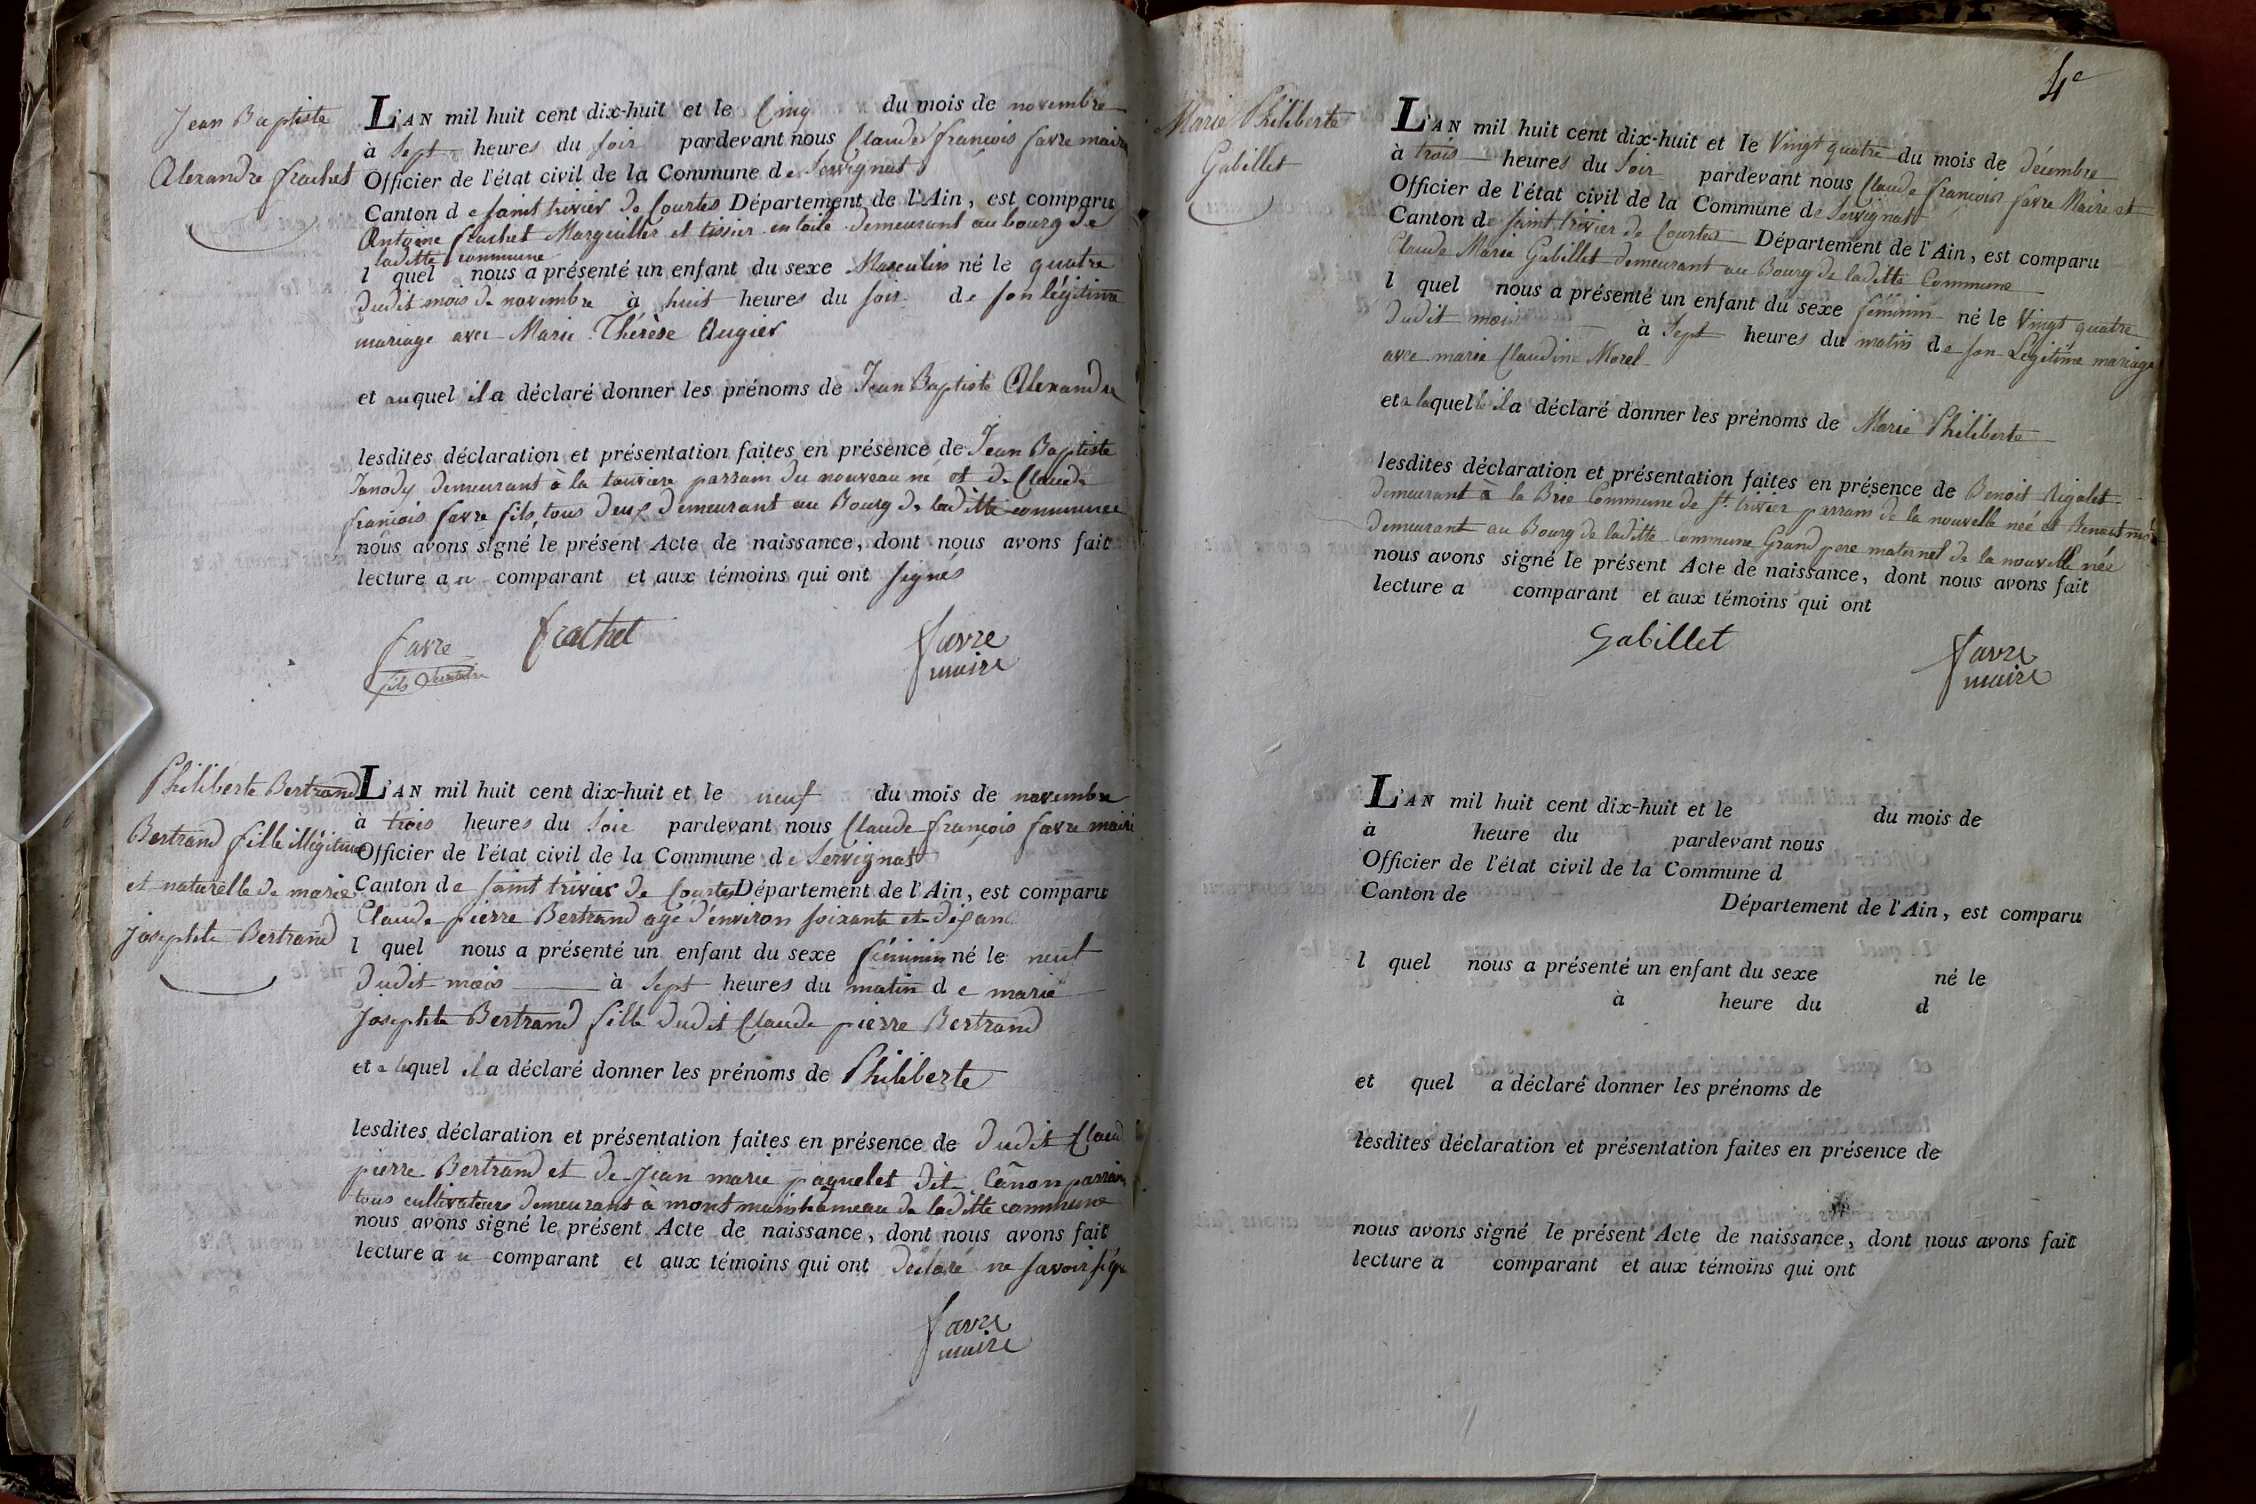 Jean Baptiste
Alexandre frachet
L'AN mil huit cent dix-huit et le Cinq du mois de novembre
à Sept heures du soir pardevant nous Claude françois favre maire
Officier de l'état civil de la Commune de Servignat
Canton de saint trivier de Courtes Département de l'Ain, est comparu
Antoine frachet Marguillier et tissier en toile demeurant au bourg de
laditte commune
l quel nous a présenté un enfant du sexe Masculin né le quatre
dudit mois de novembre à huit heures du soir de son légitime
mariage avec Marie Thérèse Augier
et auquel il a déclaré donner les prénoms de Jean Baptiste Alexandre
lesdites déclaration et présentation faites en présence de Jean Baptiste
demeurant à la parrain du nouveau né et de Claude
françois favre fils, tous deux demeurant au Bourg de laditte commune
nous avons signé le présent Acte de naissance, dont nous avons fait
lecture au comparant et aux témoins qui ont signés
favre
fils
frachet
favre
maire
Philiberte Bertrand
Bertrand fille illégitime
et naturelle de marie
Josephte Bertrand
L'AN mil huit cent dix-huit et le neuf du mois de novembre
à trois heures du Soir pardevant nous Claude françois favre maire
Officier de l'état civil de la Commune de Servignat
Canton de saint trivier de Courtes Département de l'Ain, est comparu
Claude pierre Bertrand agé d'environ soixante et dix ans
l quel nous a présenté un enfant du sexe féminin né le neuf
dudit mois à sept heures du matin de marie
Josephte Bertrand fille dudit Claude pierre Bertrand
et a laquel il a déclaré donner les prénoms de Philiberte
lesdites déclaration et présentation faites en présence de dudit Claud
pierre Bertrand et de Jean marie paquelet dit Canon parrain
tous cultivateurs demeurant à hameau de laditte commune
nous avons signé le présent Acte de naissance, dont nous avons fait
lecture au comparant et aux témoins qui ont déclaré ne savoir signe
favre
maire
4e
Marie Philiberte
Gabillet
L'AN mil huit cent dix-huit et le Vingt quatre du mois de décembre
à trois heures du Soir pardevant nous Claude françois favre Maire et
Officier de l'état civil de la Commune de Servignat
Canton de Saint trivier de Courtes Département de l'Ain, est comparu
Claude Marie Gabillet demeurant au Bourg de laditte Commune
l quel nous a présenté un enfant du sexe féminin né le Vingt quatre
dudit mois à Sept heures du matin de son Légitime mariage
avec marie Claudine Morel
et a laquelle il a déclaré donner les prénoms de Marie Philiberte
lesdites déclaration et présentation faites en présence de Benoit Rigolet
demeurant à la Commune de St. trivier parram de la nouvelle née et Benoit
demeurant au Bourg de laditte Commune Grand pere maternel de la nouvelle née
nous avons signé le présent Acte de naissance, dont nous avons fait
lecture a comparant et aux témoins qui ont
Gabillet
favre
maire
L'AN mil huit cent dix-huit et le du mois de
à heure du pardevant nous
Officier de l'état civil de la Commune d
Canton de Département de l'Ain, est comparu
l quel nous a présenté un enfant du sexe né le
à heure du d
et quel a déclaré donner les prénoms de
lesdites déclaration et présentation faites en présence de
nous avons signé le présent Acte de naissance, dont nous avons fait
lecture a comparant et aux témoins qui ont